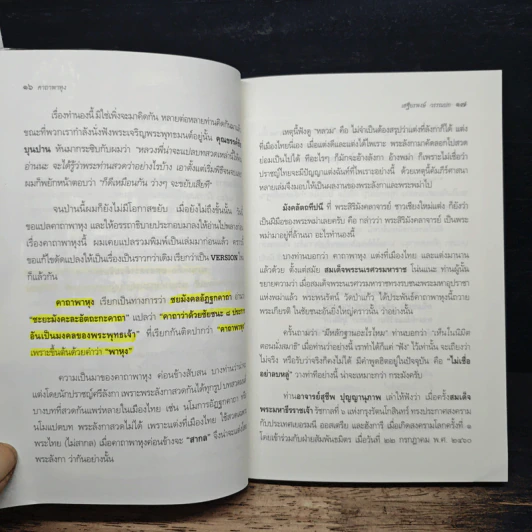 ๑๖ คาถาพาหุง
เรื่องท่านองนี้ มีใช่เพิ่งจะมาคิดกัน หลายต่อหลายท่านคิดกันมาแล้ว
ขณะที่พวกเรากำลังนั่งฟังพระเจริญพระพุทธมนต์อยู่นั้น
บุนปาน หันมากระซิบกับผมว่า "หลวงพี่น่าจะแปลบทสวดเหล่านี้ให้
อ่านนะ จะได้รู้ว่าพระท่านสวดว่าอย่างไรบ้าง เอาตั้งแต่เริ่มพิธีจนจบ
ผมก็พยักหน้าตอบว่า "ก็ดีเหมือนกัน ว่างๆ จะขยับเสียที"
จนป่านนี้ผมก็ยังไม่มีโอกาสขยับ เมื่อยังไม่ถึงขั้นนั้น
ขอแปลคาถาพาหุง และให้อรรถาธิบายประกอบมาลงให้อ่านไปพลาง
เรื่องคาถาพาหุงนี้ ผมเคยแปลรวมพิมพ์เป็นเล่มมาก่อนแล้ว
ขอแก้ไขดัดแปลงให้เป็นเรื่องเป็นราวกว่าเดิม เรียกว่าเป็น VERSION
ก็แล้วกัน
คาถาพาหุง เรียกเป็นทางการว่า ชยมังคลอัฏฐกคาถา
"ชะยะมังคะละอัตถะกะคาถา" แปลว่า "คาถาว่าด้วยชัยชนะ ๘ ประการ
อันเป็นมงคลของพระพุทธเจ้า" ที่เรียกกันติดปากว่า "คาถาพาหุง"
เพราะขึ้นต้นด้วยคำว่า "พาหุง"
ความเป็นมาของคาถาพาหุง ค่อนข้างสับสน บางท่านว่า
แต่งโดยนักปราชญ์ศรีลังกา เพราะพระลังกาสวดกันได้ทุกรูป
บางบทที่สวดกันแพร่หลายในเมืองไทย เช่น นโมการอัฏฐกคาถา
นโมแปดบท พระลังกาสวดไม่ได้ เพราะแต่งที่เมืองไทย ใช้สวดเฉพาะ
พระไทย (ไม่สากล) เมื่อคาถาพาหุงค่อนข้างจะ "สากล" จึงน่าจะแต่ง
พระลังกา ว่ากันอย่างนั้น
เสฐียรพงษ์ วรรณปก ๑๗
เหตุนี้ฟังดู "หลวม" คือ ไม่จำเป็นต้องสรุปว่าแต่งที่ลังกาก็ได้ แต่ง
ที่เมืองไทยนี่เอง เมื่อแต่งดีและแต่งไพเราะ พระลังกามาคัดลอกไปสวด
ย่อมเป็นไปได้ ทีอะไรๆ ก็มักจะอ้างลังกา อ้างพม่า ก็เพราะไม่เชื่อว่า
ปราชญ์ไทยจะมีปัญญาแต่งฉันท์ที่ไพเราะอย่างนี้ได้ ด้วยเหตุนี้คัมภีร์ศาสนา
หลายเล่มจึงมอบให้เป็นผลงานของพระลังกาและพระพม่าไป
มังคลัตถทีปนี ที่ พระสิริมังคลาจารย์ ชาวเชียงใหม่แต่ง ก็ยังว่า
เป็นฝีมือของพระพม่าเลยครับ คือ กล่าวว่า พระสิริมังคลาจารย์ เป็นพระ
พม่ามาอยู่ที่ล้านนา อะไรทำนองนี้
บางท่านว่า คาถาพาหุง แต่งที่เมืองไทย และแต่งมานาน
แล้วด้วย ตั้งแต่สมัย สมเด็จพระนเรศวรมหาราช โน่นแนะ ท่านผู้นั้น
ขยายความว่า เมื่อสมเด็จพระนเรศวรมหาราชทรงรบชนะพระมหาอุปราชา
แห่งพม่าแล้ว พระพนรัตน์ วัดป่าแก้ว ได้ประพันธ์คาถาพาหุงนี้ถวาย
พระเกียรติ ในชัยชนะอันยิ่งใหญ่คราวนั้น ว่าอย่างนั้น
ครั้นถามว่า "มีหลักฐานอะไรไหม" ท่านบอกว่า "เห็นในนิมิต
ตอนนั่งสมาธิ" เมื่อว่าอย่างนี้ เราทำได้ก็แค่ "ฟัง" ไว้เท่านั้น จะเถียงว่า
ไม่จริง หรือรับว่าจริงก็คงไม่ได้ มีคำพูดฮิตอยู่ในปัจจุบัน คือ "ไม่เชื่อ
อย่าลบหลู่" วางท่าทีอย่างนี้ น่าจะเหมาะกว่า กระมังครับ
ท่านอาจารย์สุชีพ ปุญญานุภาพ เล่าให้ฟังว่า เมื่อครั้งสมเด็จ
พระมหาธีรราชเจ้า รัชกาลที่ ๖ แห่งกรุงรัตนโกสินทร์ ทรงประกาศสงคราม
กับประเทศเยอรมนี ออสเตรีย และฮังการี เมื่อเกิดสงครามโลกครั้งที่ ๑
โดยเข้าร่วมกับฝ่ายสัมพันธมิตร เมื่อวันที่ ๒๒ กรกฎาคม พ.ศ. ๒๔๖๐